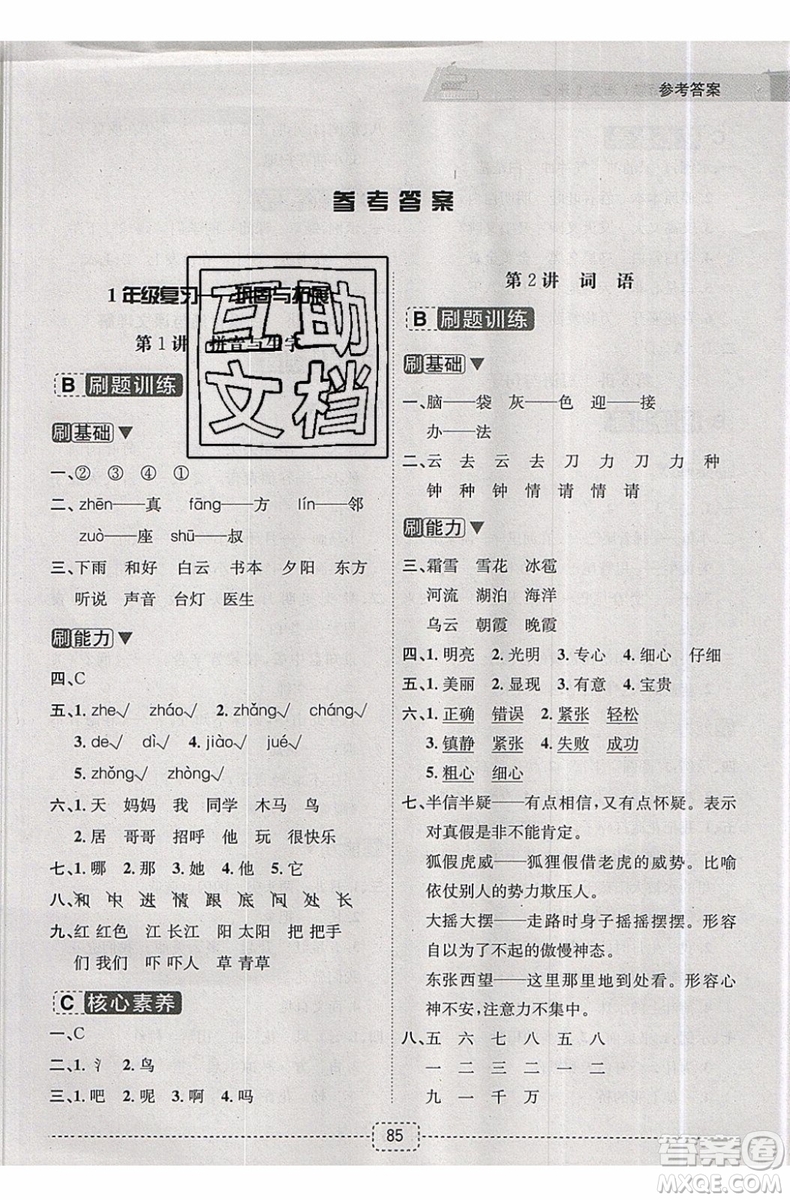 参考答案
参考答案
1年级复习——巩固与拓展
第1讲 拼音与生字
互助
文档
B 刷题训练
刷基础
一、② ③ ④ ①
二、zhēn——真 fāng——方 lín——邻
zuò——座 shū——叔
三、下雨 和好 白云 书本 夕阳 东方
听说 声音 台灯 医生
刷能力
四、C
五、1. zhe√ zháo√ 2. zhǎng√ cháng√
3. de√ dì√ 4. jiào√ jué√
5. zhǒng√ zhòng√
六、1. 天 妈妈 我 同学 木马 鸟
2. 居 哥哥 招呼 他 玩 很快乐
七、1. 哪 2. 那 3. 她 4. 他 5. 它
九、红 红色 江 长江 阳 太阳 把 把手
们 我们 吓 吓人 草 青草
C 核心素养
一、C
二、1. 氵 2. 鸟
三、1. 吧 2. 呢 3. 啊 4. 吗
第2讲 词语
B 刷题训练
刷基础
一、脑——袋 灰——色 迎——接
办——法
二、云 去 云 去 刀 力 刀 力 种
钟 种 钟 情 请 情 请
刷能力
三、霜雪 雪花 冰雹
河流 湖泊 海洋
乌云 朝霞 晚霞
四、1. 明亮 2. 光明 3. 专心 4. 细心 仔细
五、1. 美丽 2. 显现 3. 有意 4. 宝贵
六、1. 正确 错误 2. 紧张 轻松
3. 镇静 紧张 4. 失败 成功
5. 粗心 细心
七、半信半疑——有点相信，又有点怀疑。表示
对真假是非不能肯定。
狐假虎威——狐狸假借老虎的威势。比喻
依仗别人的势力欺压人。
大摇大摆——走路时身子摇摇摆摆。形容
自以为了不起的傲慢神态。
东张西望——这里那里地到处看。形容心
神不安，注意力不集中。
八、五 六 七 八 五 八
一 二 三 二 一 二
九 一 千 万
85
答案圈
MXQE.COM